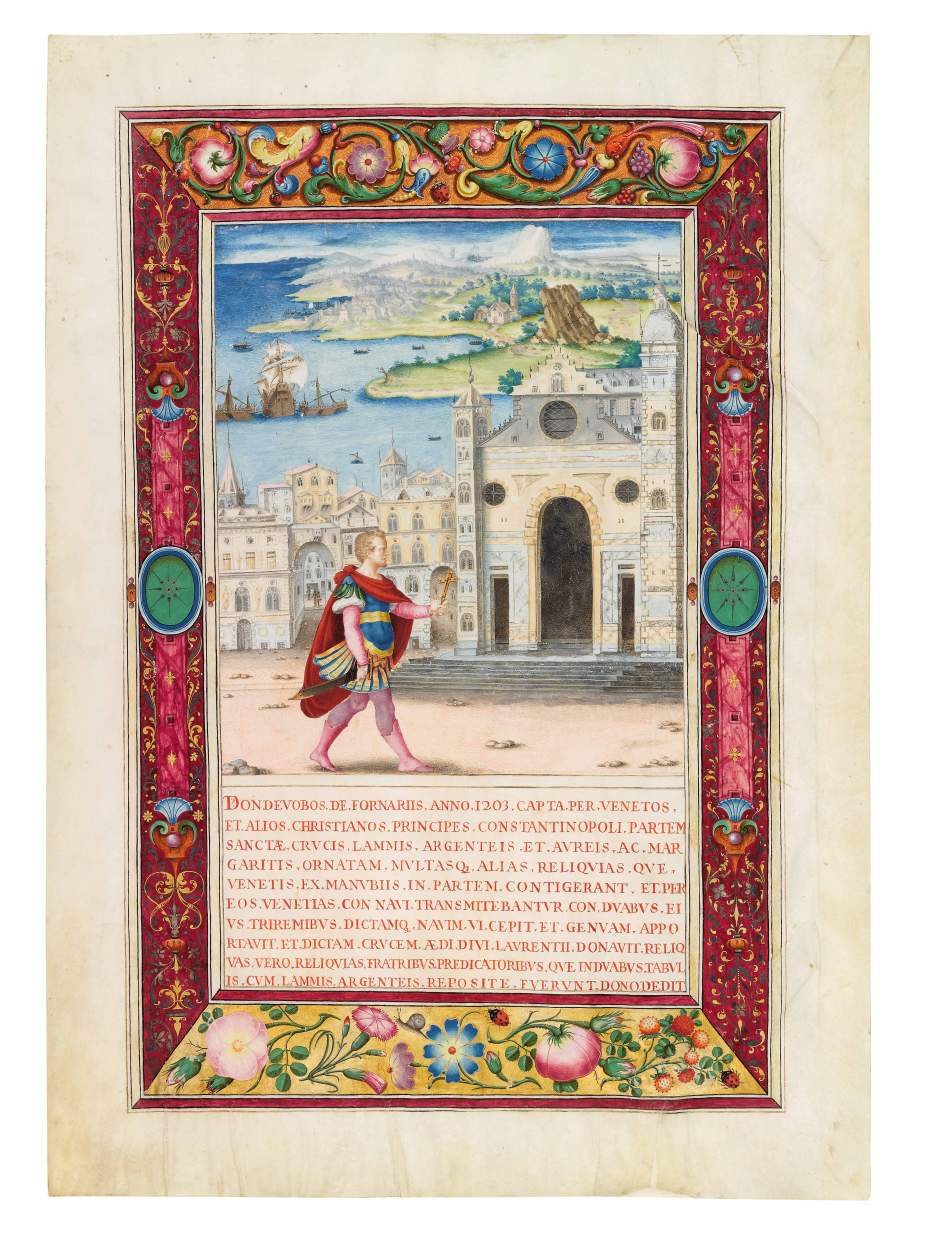 DONDEVOBOS.DE.FORNARIIS.ANNO.1203.CAPTA.PER.VENETOS.
ET.ALIOS.CHRISTIANOS.PRINCIPES.CONSTANTINOPOLI.PARTEM
SANCTÆ.CRVCIS.LAMMIS.ARGENTEIS.ET.AVREIS.AC.MAR
GARITIS.ORNATAM.MVLTASQ;ALIAS.RELIQVIAS.QVE.
VENETIS.EX.MANVBIIS.IN.PARTEM.CONTIGERANT.ET.PER
EOS.VENETIAS.CON.NAVI.TRANSMITEBANTVR.CON.DVABVS.EI
VS.TRIREMIBVS.DICTAMQ.NAVIM.VI.CEPIT.ET.GENVAM.APPO
RTAVIT.ET.DICTAM.CRVCEM.ÆDI.DIVI.LAVRENTII.DONAVIT.RELIQ
VAS.VERO.RELIQVIAS.FRATRIBVS.PREDICATORIBVS,QVE IN DVABVS.TABVL
IS.CVM.LAMMIS.ARGENTEIS.REPOSITE.FVERVNT.DONO DEDIT